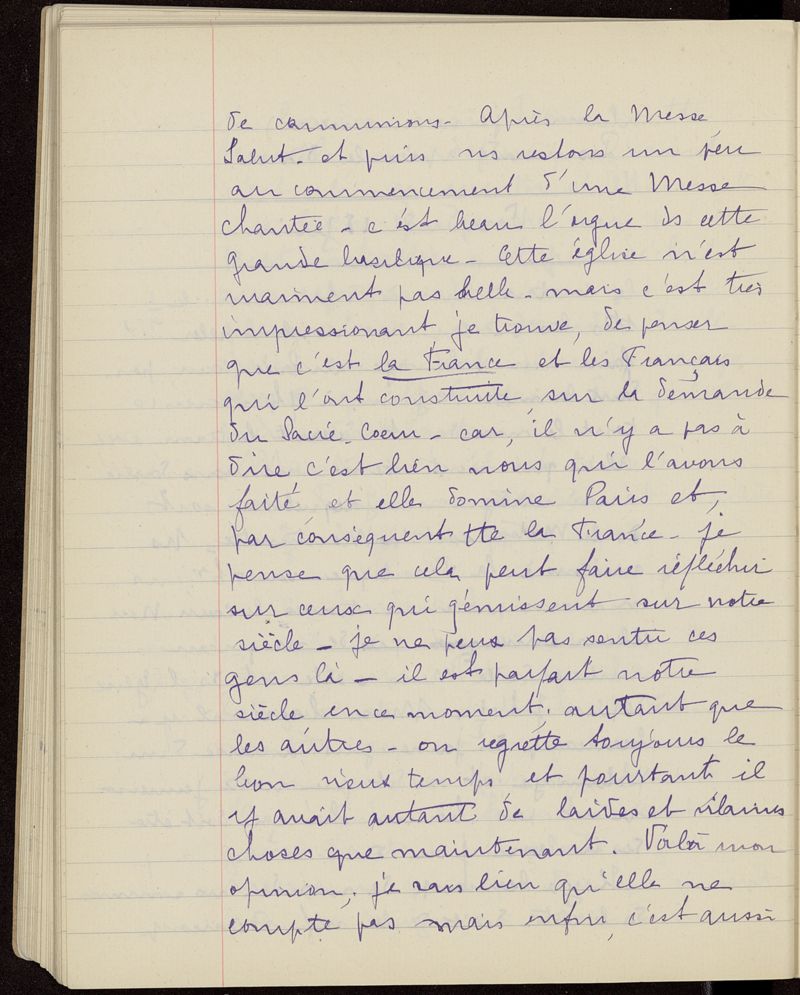 de communions - Après la Messe,
Salut - et puis ns restons un peu
au commencement d'une Messe
chantée - c'est beau l'orgue ds cette
grande basilique - Cette église n'est
vraiment pas belle - mais c'est très
impressionant, je trouve, de penser
que c'est la France et les Français
qui l'ont construite, sur la demande
du Sacré-Coeur - car, il n'y a pas à
dire c'est bien nous qui l'avons
faite, et elle domine Paris et,
par conséquent tte la France - je
pense que cela peut faire réfléchir
sur ceux qui gémissent sur notre
siècle - je ne peux pas sentir ces
gens là - il est parfait notre
siècle en ce moment, autant que
les autres - on regrette toujours le
bon vieux temps et pourtant il
y avait autant de laides et vilaines
choses que maintenant. Voilà mon
opinion, je sais bien qu'elle ne
compte pas mais enfin, c'est aussi